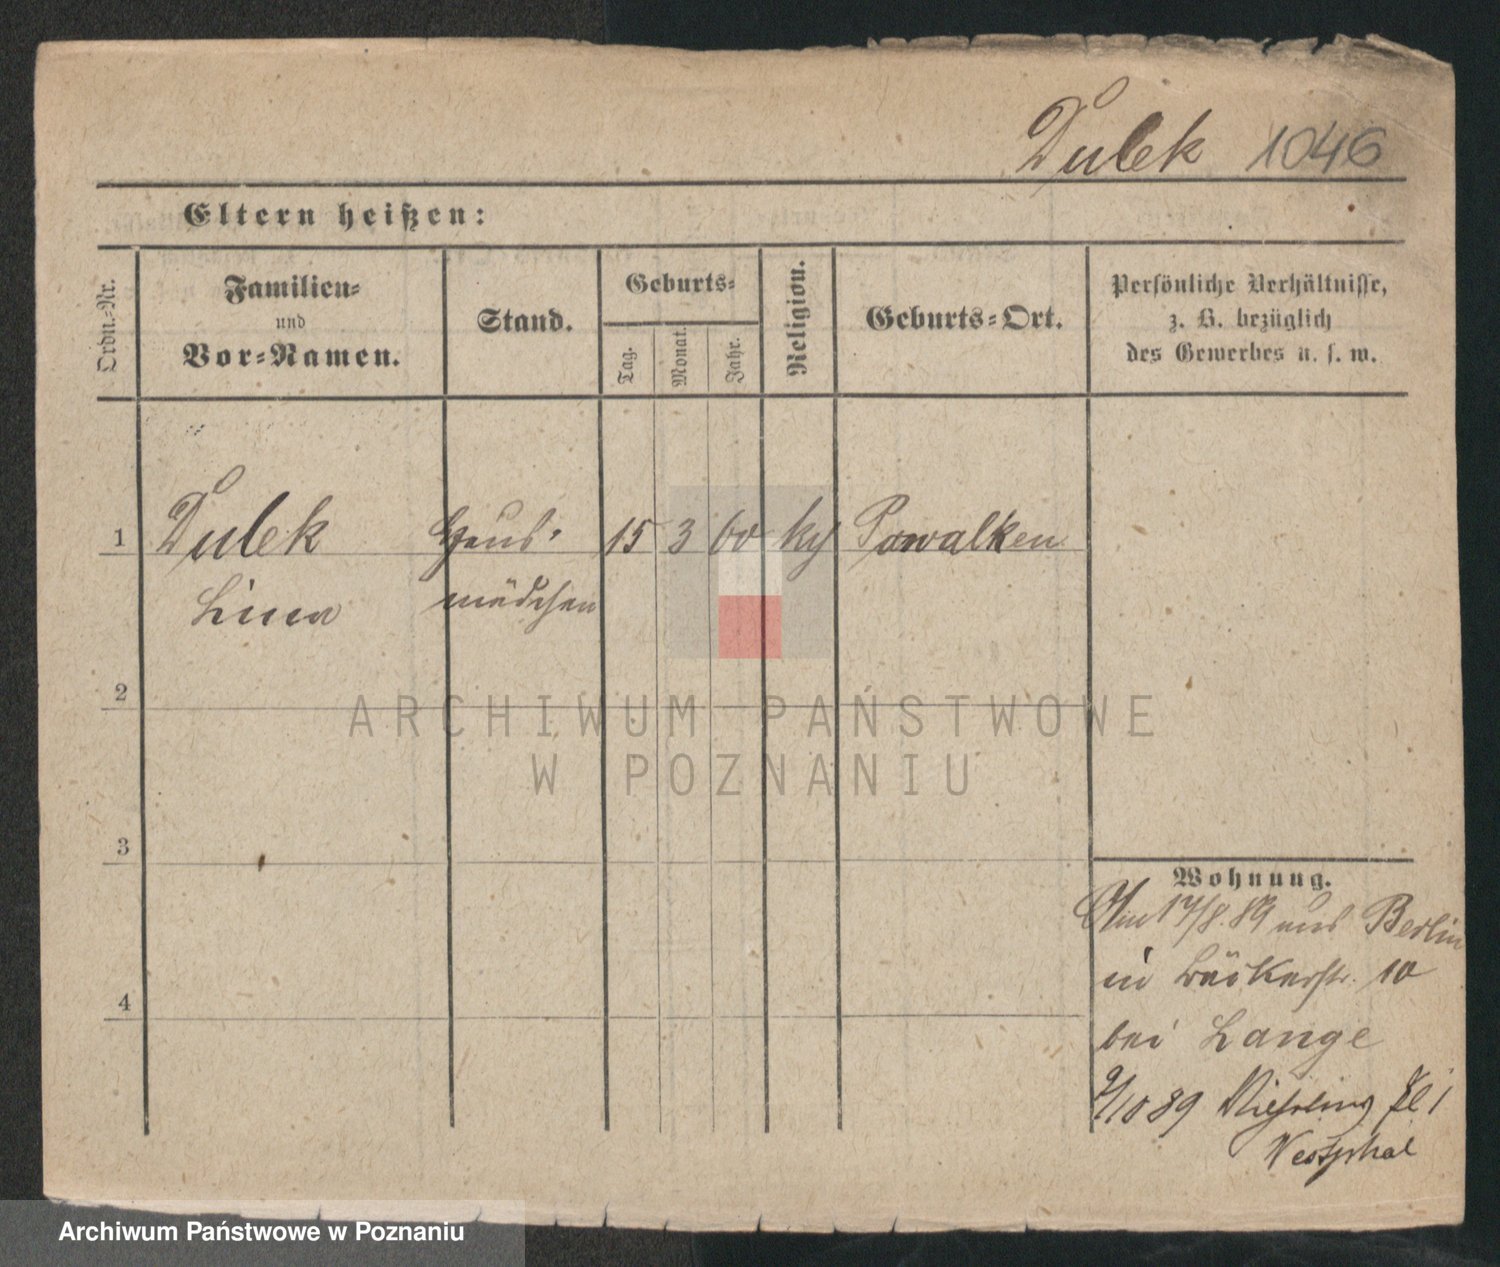 Dulek 1046
Eltern heißen:
Ordn.-Nr.
Familien-
und
Vor-Namen.
Stand.
Geburts-
Tag.
Monat.
Jahr.
Religion.
Geburts-Ort.
Persönliche Verhältnisse,
z. B. bezüglich
des Gewerbes u. s. w.
1 Dulek Haus- 15 3 60 Powalken
Lina mädchen
2
3
4
ARCHIWUM PAŃSTWOWE
W POZNANIU
Wohnung.
17/8. 89 aus Berlin
in Bäckerstr. 10
bei Lange
9/10 89
Westphal
Archiwum Państwowe w Poznaniu